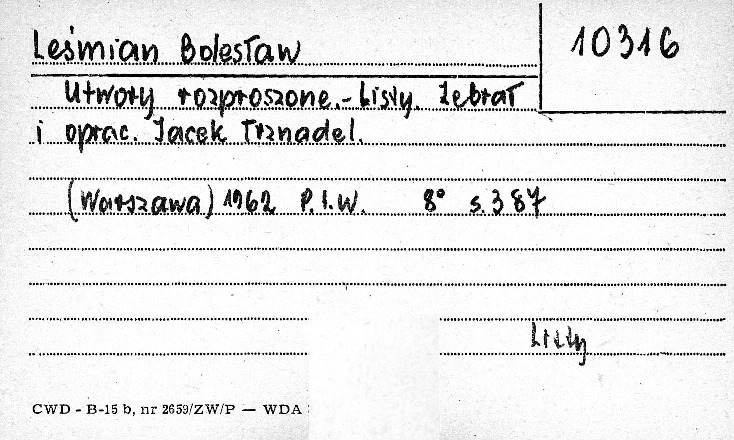 Leśmian Bolesław
10316
Utwory rozproszone.- Listy. Zebrał
i oprac. Jacek Trznadel.
(Warszawa) 1962 P.I.W. 8° s. 387
Listy
CWD - B-15 b, nr 2659/ZW/P — WDA